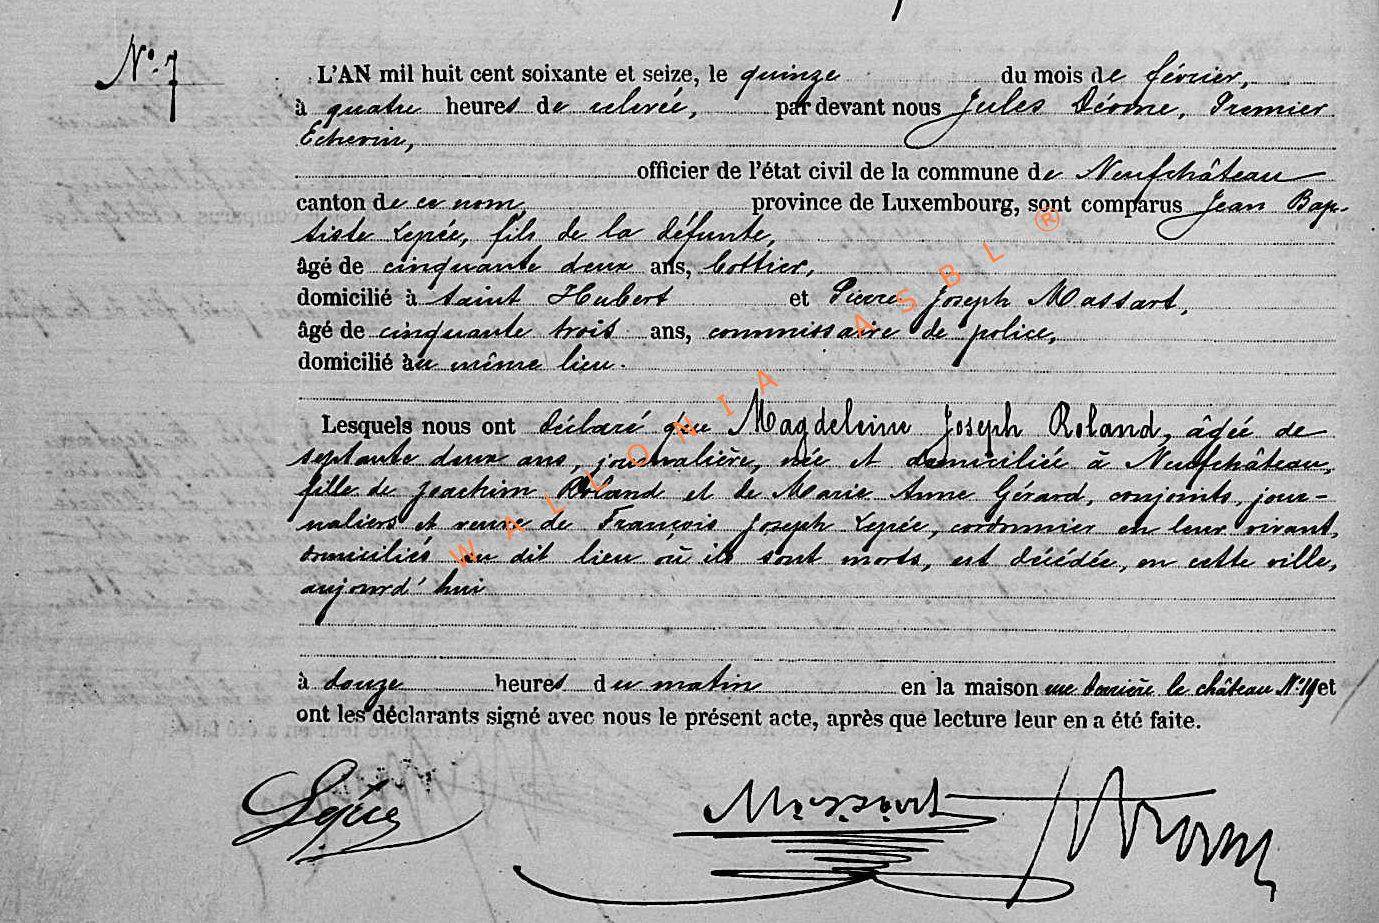 N° 7
L'AN mil huit cent soixante et seize, le quinze du mois de février,
à quatre heures de relevée, par devant nous Jules Déome, Premier
Echevin,
officier de l'état civil de la commune de Neufchâteau
canton de ce nom province de Luxembourg, sont comparus Jean Bap-
tiste Lepée, fils de la défunte,
âgé de cinquante deux ans, bottier,
domicilié à Saint Hubert et Pierre Joseph Massart,
âgé de cinquante trois ans, commissaire de police,
domicilié àu même lieu.
Lesquels nous ont déclaré que Magdeleine Joseph Roland, âgée de
septante deux ans, journalière, née et domiciliée à Neufchâteau,
fille de Joachim Roland et de Marie Anne Gérard, conjoints, jour-
naliers et veuve de François Joseph Lepée, cordonnier en leur vivant,
domiciliés au dit lieu où ils sont morts, est décédée, en cette ville,
aujourd'hui
à douze heures du matin en la maison rue derrière le château N° 19 et
ont les déclarants signé avec nous le présent acte, après que lecture leur en a été faite.
Lepée Massart
WALLONIA ASBL ®